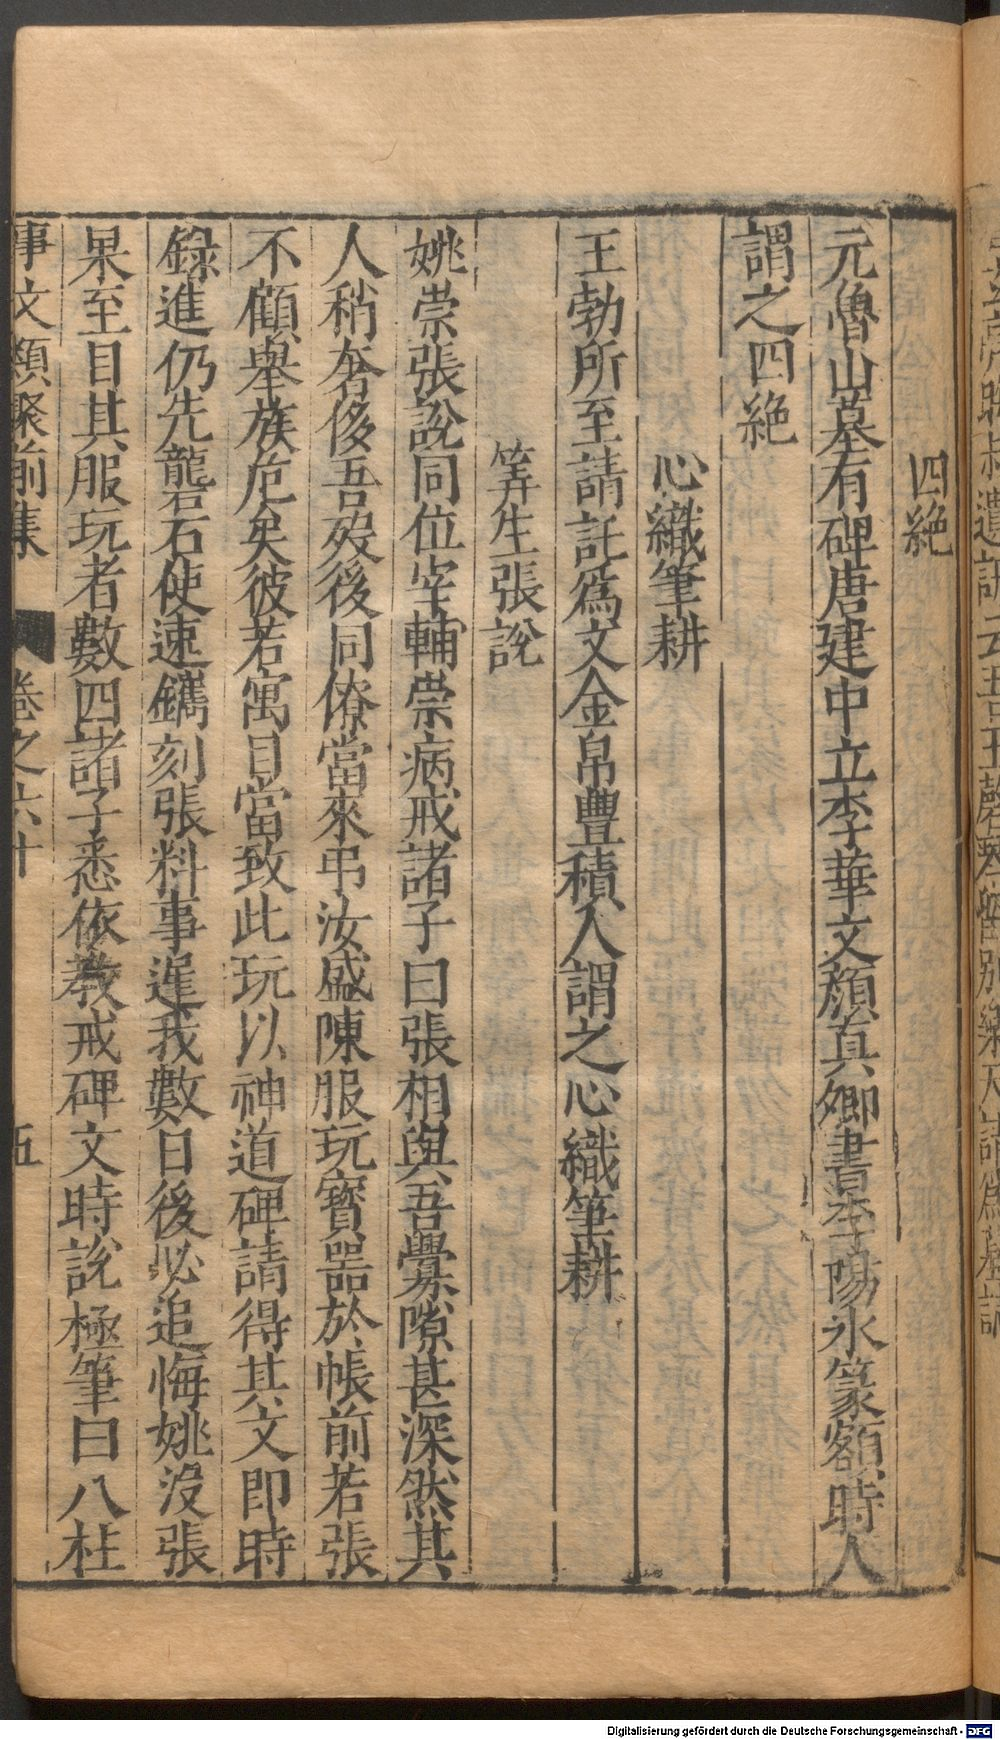 四絶
元魯山墓有碑唐建中立李華文顔真卿書李陽氷篆額時人
謂之四絶
心織筆耕
王勃所至請託爲文金帛豐積人謂之心織筆耕
筭生張說
姚崇張說同位宰輔崇病戒諸子曰張相與吾釁隙甚深然其
人稍奢侈吾歿後同僚當來弔汝盛陳服玩寳器於帳前若張
不顧舉族危矣彼若寓目當致此玩以神道碑請得其文即時
録進仍先礱石使速鐫刻張料事遲我數日後必追悔姚沒張
果至目其服玩者數四諸子悉依教戒碑文時說極筆曰八柱
事文類聚前集 卷之六十 五
Digitalisierung gefördert durch die Deutsche Forschungsgemeinschaft - DFG